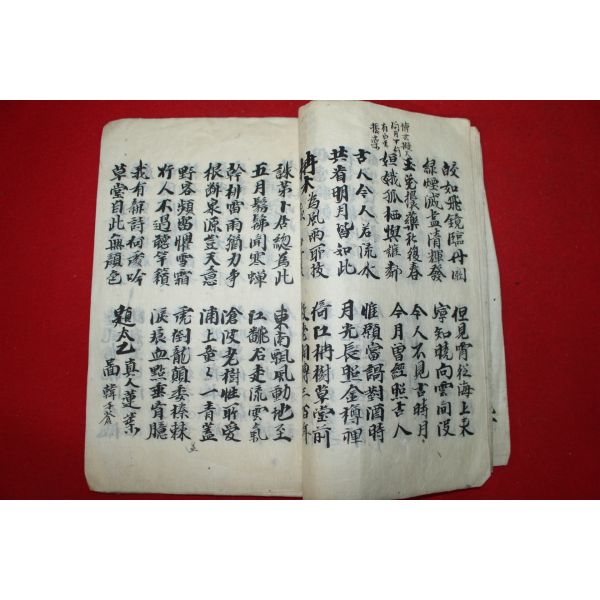 皎如飛鏡臨丹闕
綠煙滅盡清輝發
但見宵從海上來
寧知曉向雲間沒
傅玄擬
問月中何
有白兔
搗藥
玉兔搗藥秋復春
姮娥孤栖與誰鄰
今人不見古時月
今月曾經照古人
古人今人若流水
共看明月皆如此
惟願當謌對酒時
月光長照金樽裡
枏木為風雨所拔
倚江枏樹草堂前
故老相傳二百年
誅茅卜居總為此
五月髣髴聞寒蟬
東南飄風動地至
江翻石走流雲氣
幹排雷雨猶力爭
根斷泉源豈天意
滄波老樹性所愛
浦上童童一青蓋
野客頻留懼雪霜
行人不過聽竽籟
虎倒龍顛委榛棘
淚痕血點垂胸臆
我有新詩何處吟
草堂自此無顏色
題太乙真人蓮葉
圖 韓子蒼